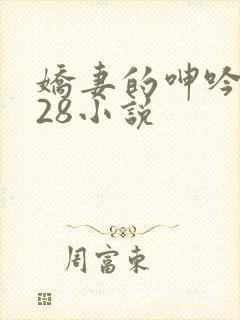 嬌妻的呻吟
28小說
周富東